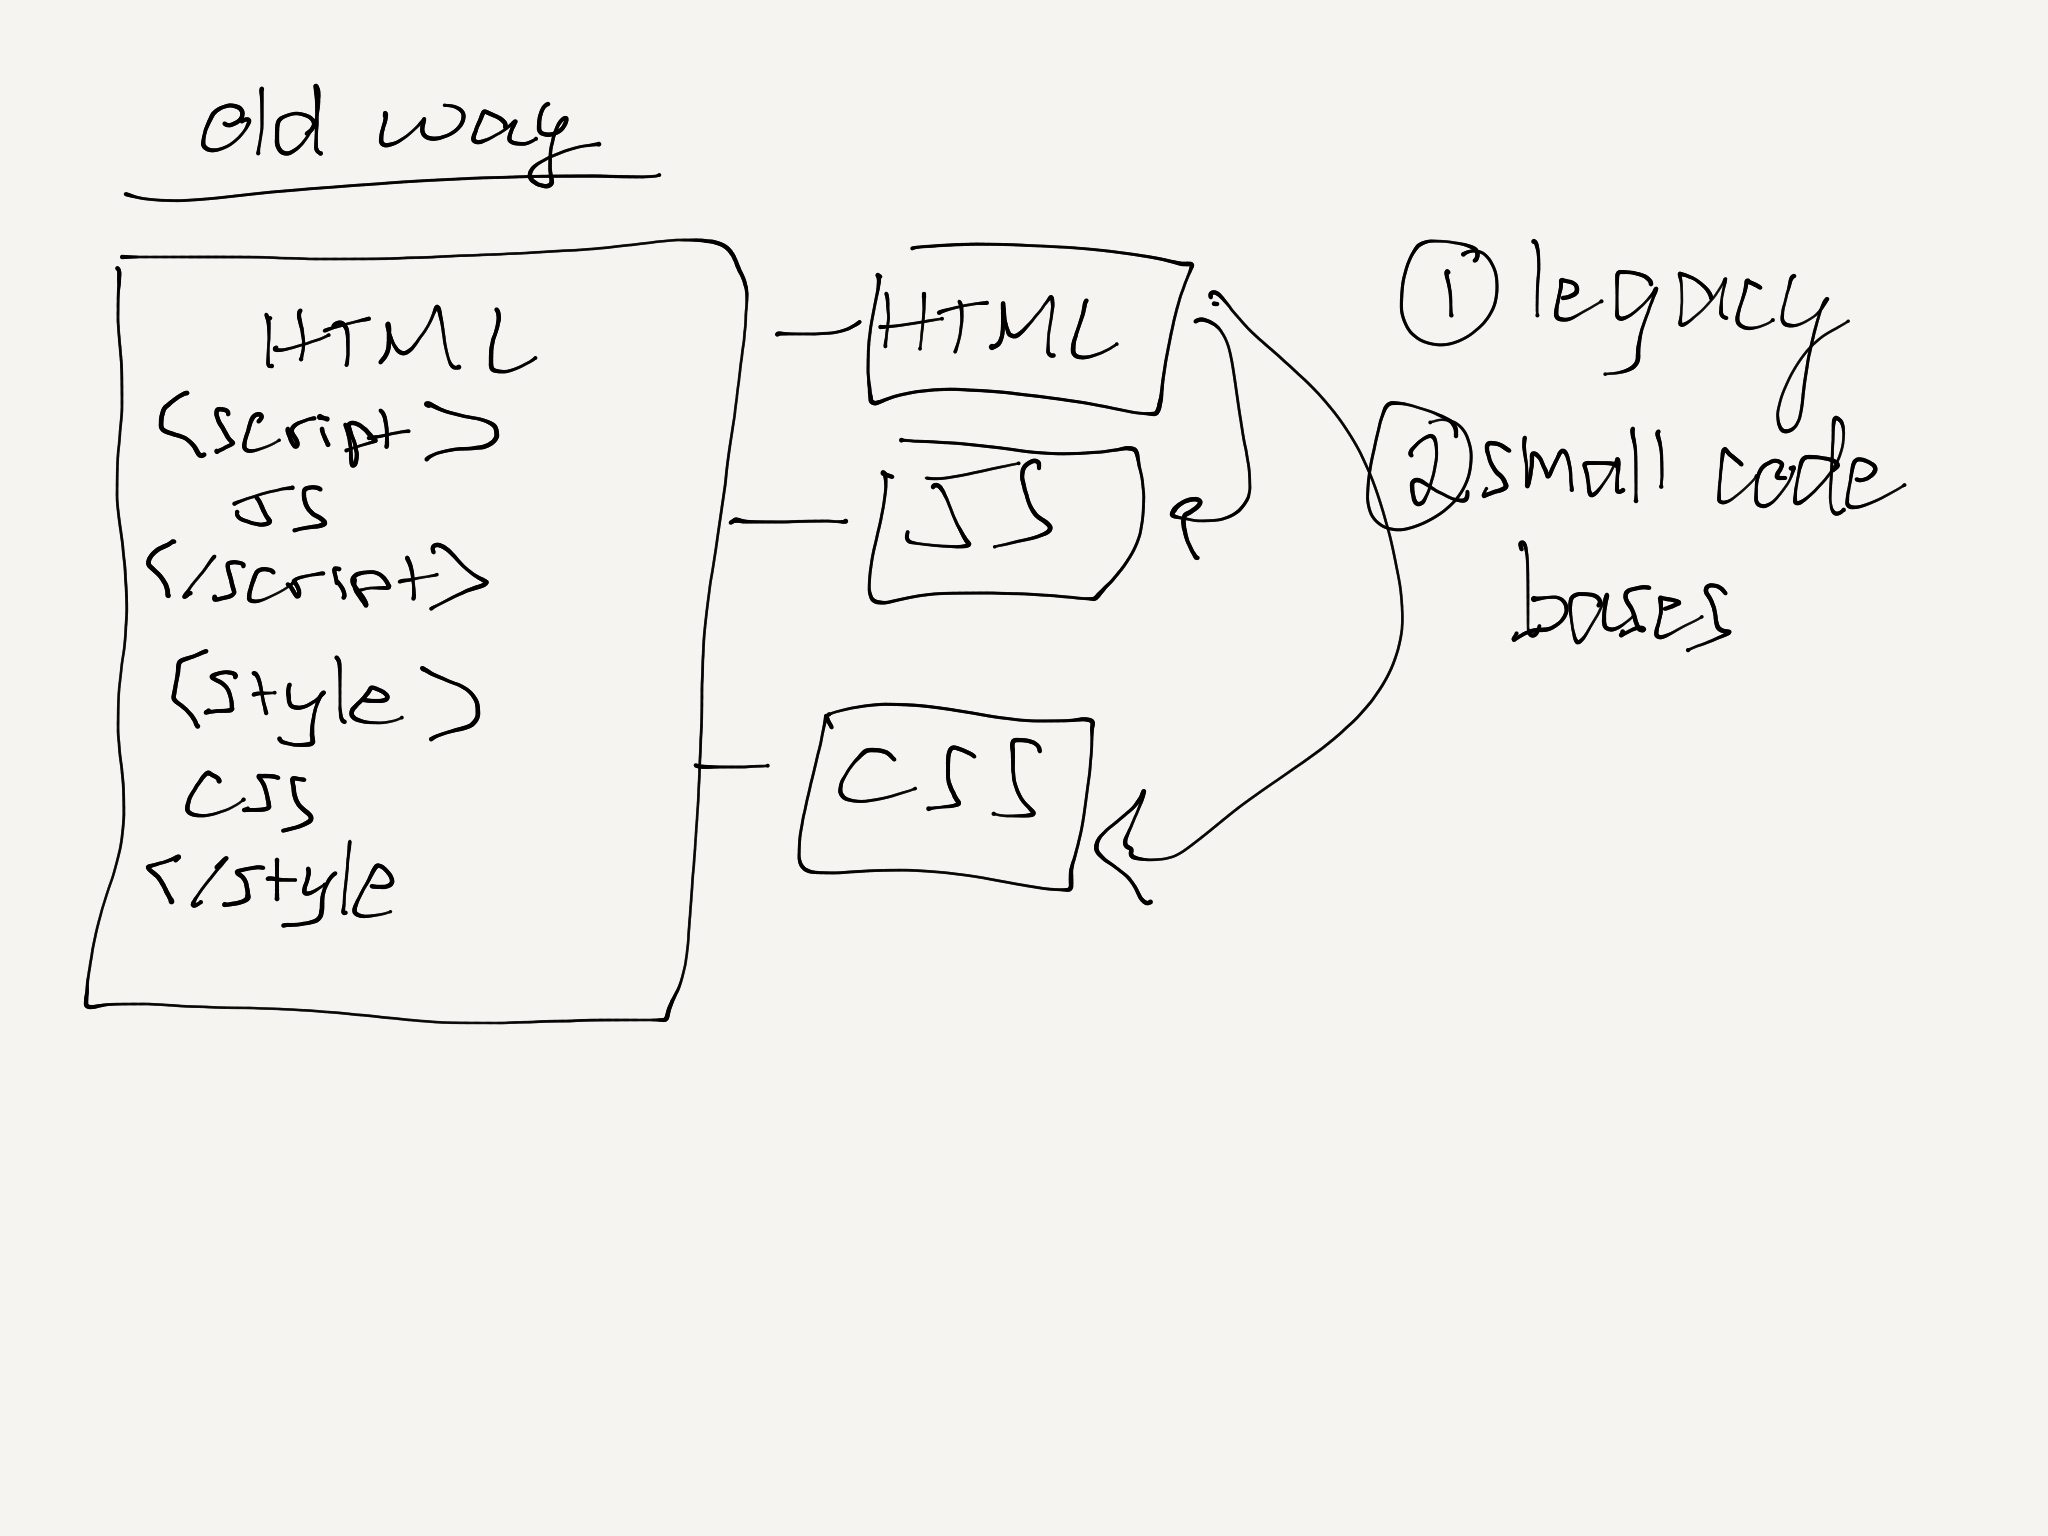 old way
HTML
<script>
JS
</script>
<style>
CSS
</style
HTML
JS
CSS
1 legacy
2 small code
bases